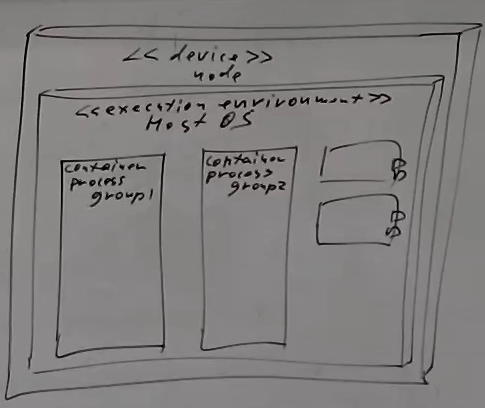 <<device>>
node
<<execution environment>>
Host OS
container
process
group1
container
process
group2